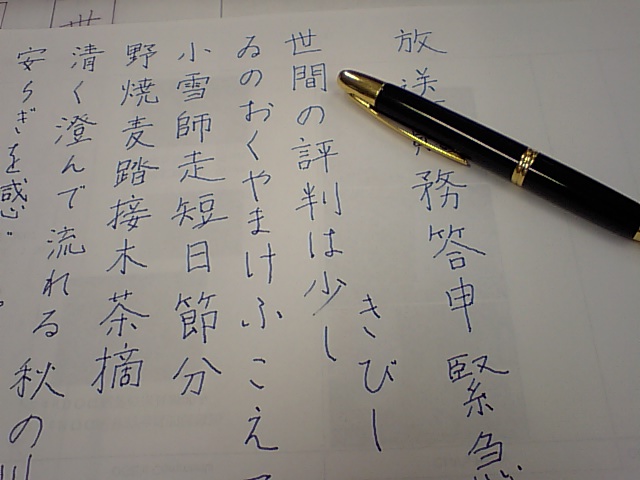 放送 務答申緊急
きびし
世間の評判は少し
ゐのおくやまけふこえて
小雪師走短日節分
野焼麦踏接木茶摘
清く澄んで流れる秋の川
安らぎを感